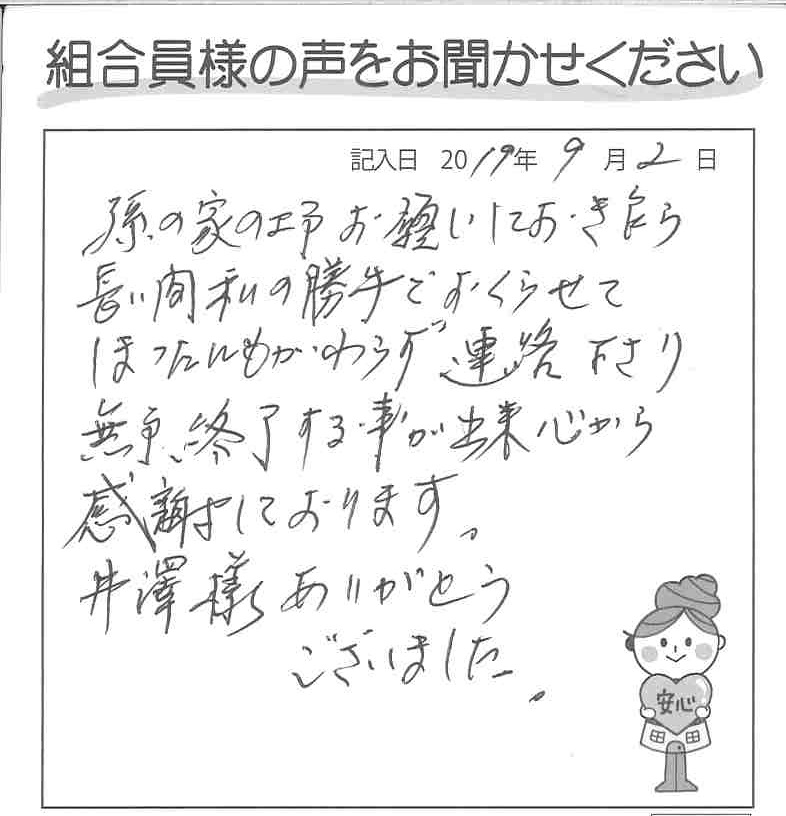 組合員様の声をお聞かせください
記入日 2019年 9月 2日
孫の家の Holお願いしておき乍ら
長い間私の勝手でおくらせて
しまったにもかかわらず連絡下さり
無事終了する事が出来心から
感謝しております。
井澤様ありがとう
ございました。
安心